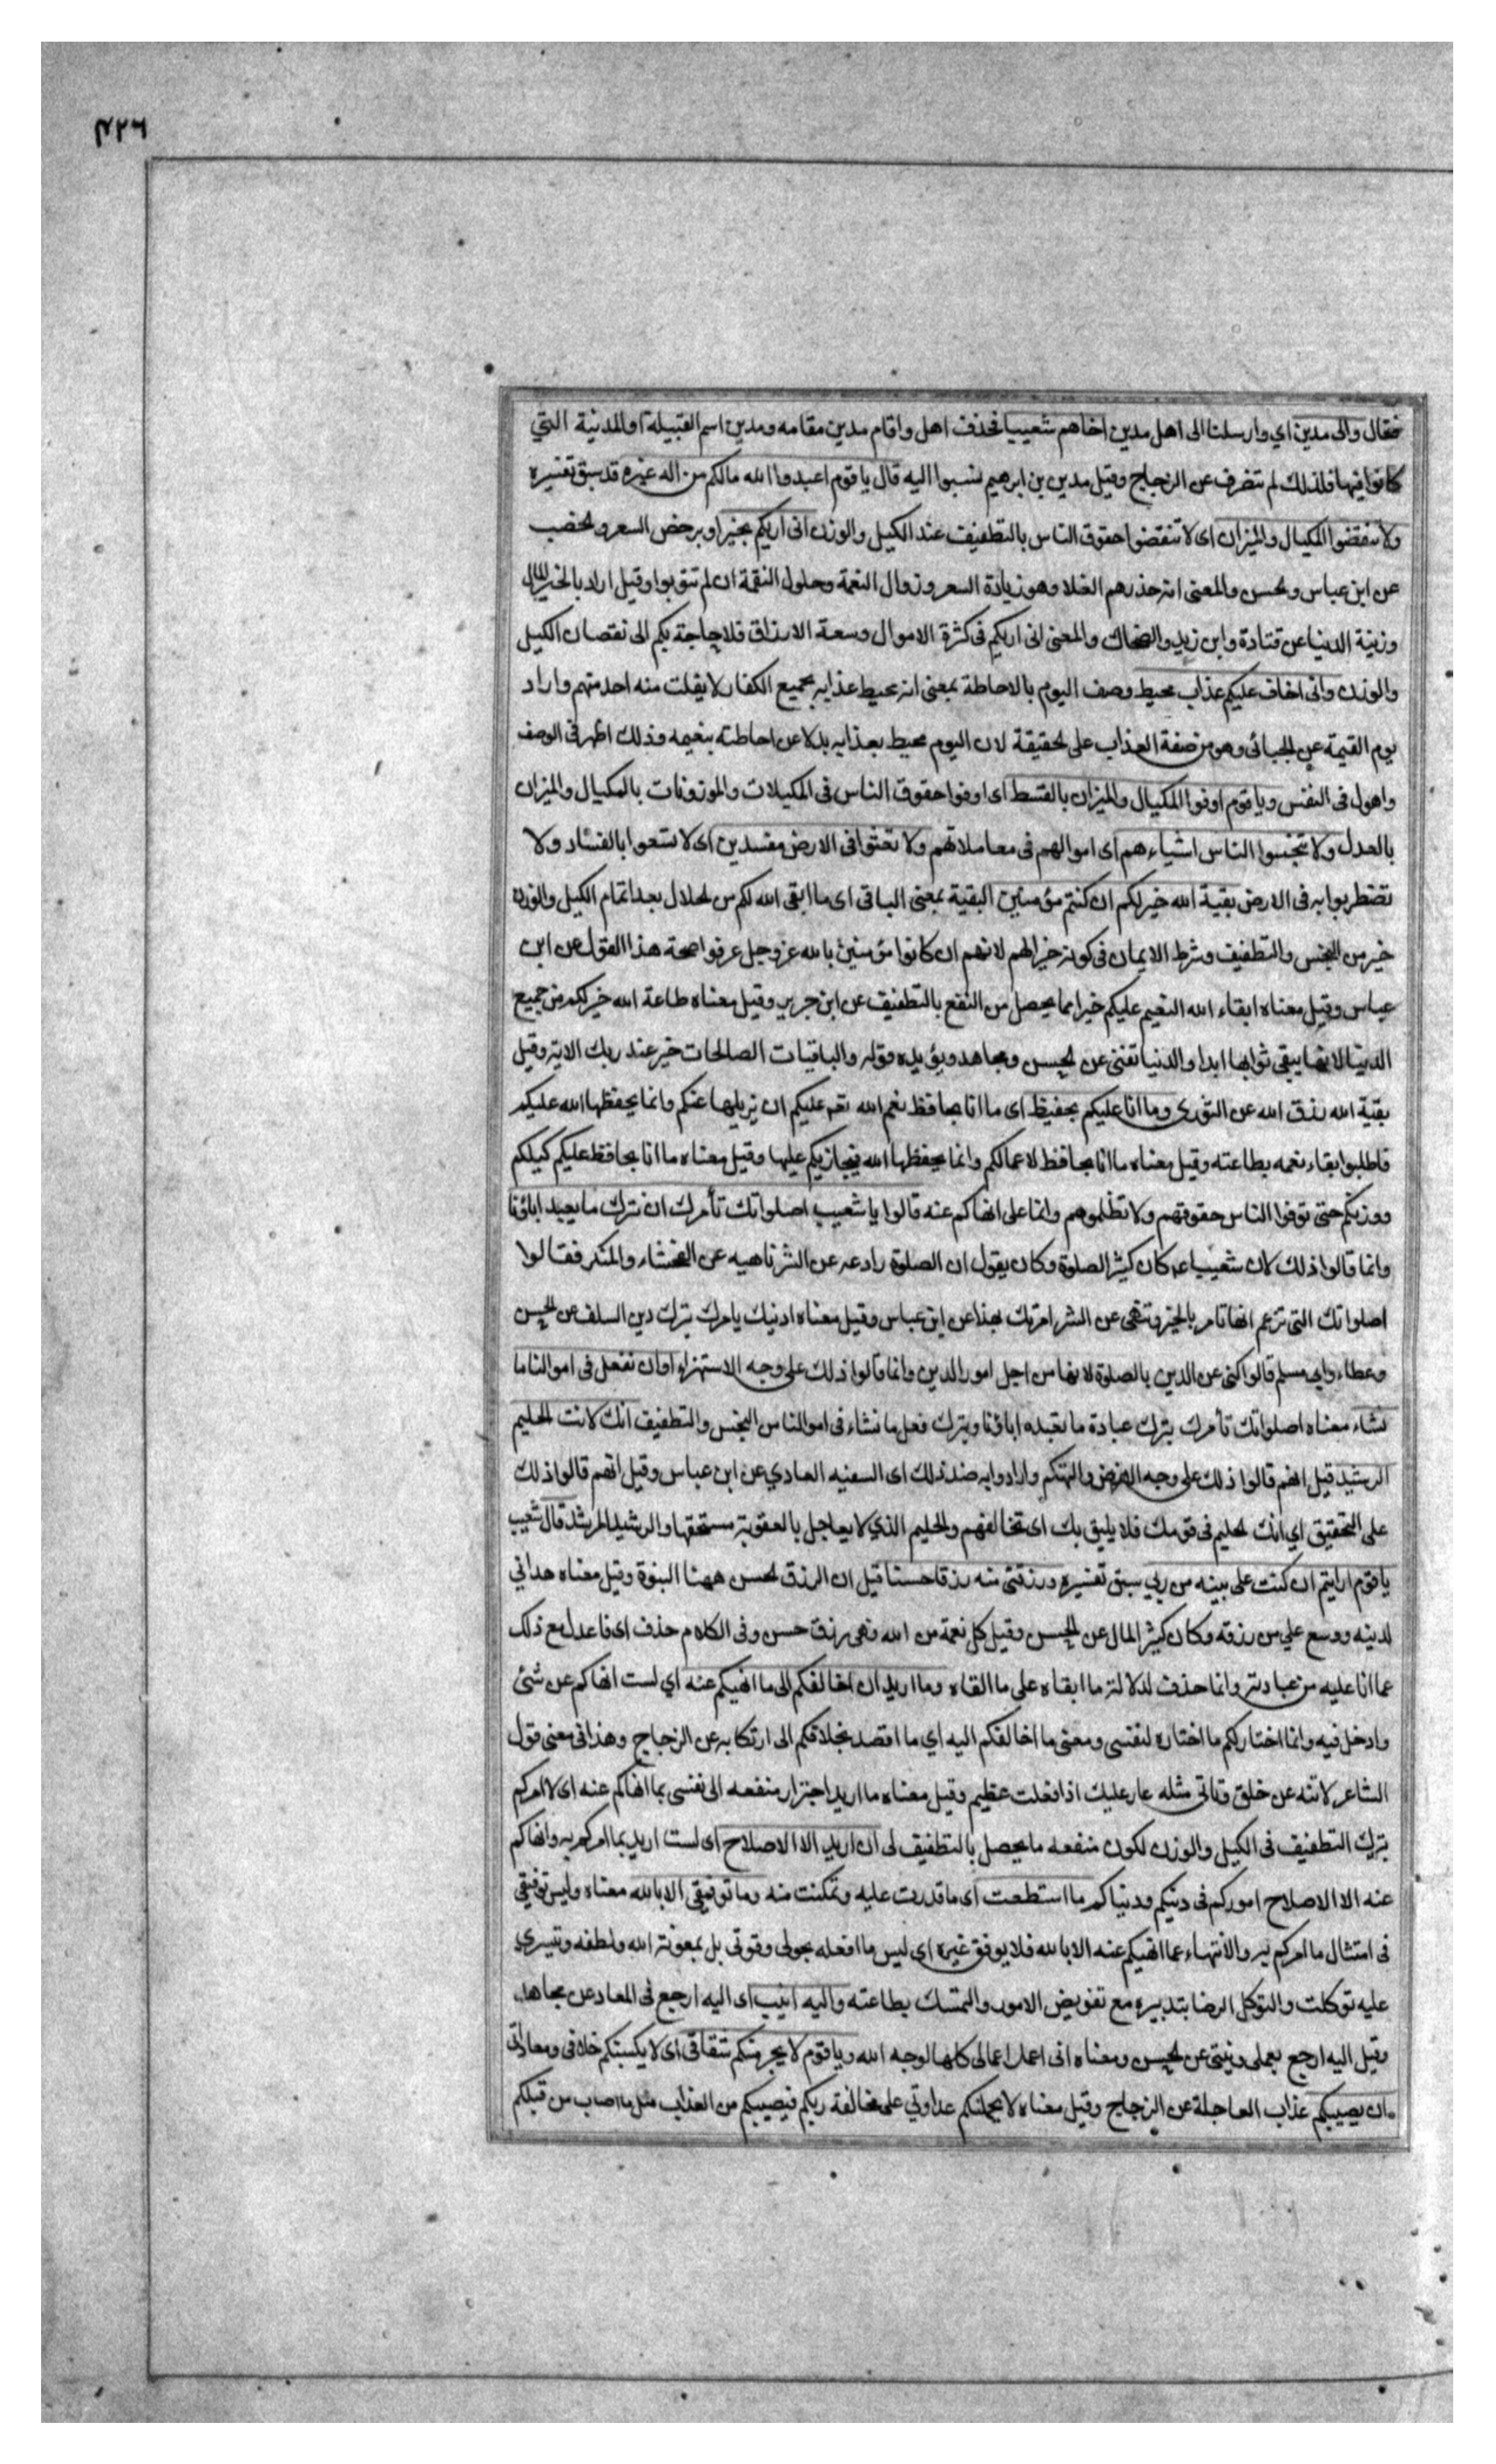 ٤٢٦
فقال والى مدين اي وارسلنا الى اهل مدين اخاهم شعيبا فحذف اهل واقام مدين مقامه ومدين اسم القبيلة او المدينة التي
كانوا فيها فلذلك لم تتصرف عن الزجاج وقيل مدين بن ابرهيم نسبوا اليه قال يا قوم اعبدوا الله مالكم من اله غيره قد سبق تفسيره
ولا تنقصوا المكيال والميزان اى لا تنقصوا حقوق الناس بالتطفيف عند الكيل والوزن انى اريكم بخير او برخص السعر والخصب
عن ابن عباس والحسن والمعنى انه حذرهم الغلا وهو زيادة السعر وزوال النعمة وحلول النقمة ان لم تتوبوا وقيل اراد بالخير المال
وزينة الدنيا عن قتادة وابن زيد والضحاك والمعنى انى اريكم فى كثرة الاموال وسعة الارزاق فلا حاجة بكم الى نقصان الكيل
والوزن وانى اخاف عليكم عذاب محيط وصف اليوم بالاحاطة بمعنى انه يحيط عذابه بجميع الكفار لا يفلت منه احد منهم واراد
يوم القيمة عن الجبائى وهو من صفة العذاب على الحقيقة لان اليوم محيط بعذابه بدلا عن احاطته بنعيمه وذلك اظهر فى الوصف
واهول فى النفس ويا قوم اوفوا المكيال والميزان بالقسط اى اوفوا حقوق الناس فى المكيلات والموزونات بالمكيال والميزان
بالعدل ولا تبخسوا الناس اشياءهم اى اموالهم فى معاملاتهم ولا تعثوا فى الارض مفسدين اى لا تسعوا بالفساد ولا
تضطربوا به فى الارض بقية الله خير لكم ان كنتم مؤمنين البقية بمعنى الباقى اى ما ابقى الله لكم من الحلال بعد اتمام الكيل والوزن
خير من البخس والتطفيف وشرط الايمان فى كونه خيرا لهم لانهم ان كانوا مؤمنين بالله عز وجل عرفوا صحة هذا القول عن ابن
عباس وقيل معناه ابقاء الله النعيم عليكم خير مما يحصل من النفع بالتطفيف عن ابن جرير وقيل معناه طاعة الله خير لكم من جميع
الدنيا لانها يبقى ثوابها ابدا والدنيا تفنى عن الحسن ومجاهد ويؤيده قوله والباقيات الصالحات خير عند ربك الاية وقيل
بقية الله رزق الله عن الثورى وما انا عليكم بحفيظ اى ما انا بحافظ نعم الله عليكم ان يزيلها عنكم وانما يحفظها الله عليكم
فاطلبوا بقاء نعمه بطاعته وقيل معناه ما انا بحافظ لاعمالكم وانما يحفظها الله فيجازيكم عليها وقيل معناه ما انا بحافظ عليكم كيلكم
ووزنكم حتى توفوا الناس حقوقهم ولا تظلموهم وانما على انهاكم عنه قالوا يا شعيب اصلواتك تأمرك ان نترك ما يعبد اباؤنا
وانما قالوا ذلك لان شعيبا كان كثير الصلوة وكان يقول ان الصلوة رادعه عن الشر ناهيه عن الفحشاء والمنكر فقالوا
اصلواتك التى تزعم انها تامر بالخير وتنهى عن الشر امرتك بهذا عن ابن عباس وقيل معناه ادينك يامرك بترك دين السلف عن الحسن
وعطاء وابي مسلم قالوا كنى عن الدين بالصلوة لانها من اجل امور الدين وانما قالوا ذلك على وجه الاستهزاء او ان نفعل فى اموالنا ما
نشاء معناه اصلواتك تأمرك بترك عبادة ما يعبده اباؤنا وبترك فعل ما نشاء فى اموالنا من البخس والتطفيف انك لانت الحليم
الرشيد قيل انهم قالوا ذلك على وجه والتهكم وارادوا به ضد ذلك اى السفيه الغادي عن ابن عباس وقيل انهم قالوا ذلك
على التحقيق اي انك الحليم فى قومك فلا يليق بك اى تخالفهم والحليم الذي لا يعاجل بالعقوبة مستحقها والرشيد المرشد قال شعيب
يا قوم ارايتم ان كنت على بينه من ربي سبق تفسيره ورزقنى منه رزقا حسنا قيل ان الرزق الحسن ههنا النبوة وقيل معناه هداني
لدينه ووسع علي من رزقه وكان كثير المال عن الحسن وقيل كل نعمة من الله فهى رزق حسن وفى الكلام حذف اى فاعدل مع ذلك
عما انا عليه من عبادته وانما حذف لدلالة ما ابقاه على ما القاه وما اريد ان اخالفكم الى ما انهيكم عنه اي لست انهاكم عن شئ
وادخل فيه وانما اختار لكم ما اختاره لنفسى ومعنى ما اخالفكم اليه اي ما اقصد بخلافكم الى ارتكابه عن الزجاج وهذا فى معنى قول
الشاعر لا تنه عن خلق وتأتى مثله عار عليك اذا فعلت عظيم وقيل معناه ما اريد اجترار منفعه الى نفسى بما انهاكم عنه اى لا امركم
بترك التطفيف فى الكيل والوزن لكون منفعه ما يحصل بالتطفيف لى ان اريد الا الاصلاح اى لست اريد بما امركم به وانهاكم
عنه الا الاصلاح اموركم فى دينكم ودنياكم ما استطعت اى ما قدرت عليه وتمكنت منه وما توفيقى الا بالله معناه وليس توفيقي
فى امتثال ما امركم به والانتهاء عما انهيكم عنه الا بالله فلا يوفق غيره اى ليس ما افعله بحولى وقوتى بل بمعونة الله ولطفه وتيسيره
عليه توكلت والتوكل الرضا بتدبيره مع تفويض الامور والتمسك بطاعته واليه انيب اى اليه ارجع فى المعاد عن مجاهد
وقيل اليه ارجع بعملى ونيتى عن الحسن ومعناه انى اعمل اعمالى كلها لوجه الله ويا قوم لا يجرمنكم شقاقى اى لا يكسبنكم خلافى ومعاداتى
ان يصيبكم عذاب العاجلة عن الزجاج وقيل معناه لا يحملنكم عداوتي على مخالفة ربكم فيصيبكم من العذاب مثل ما اصاب من قبلكم